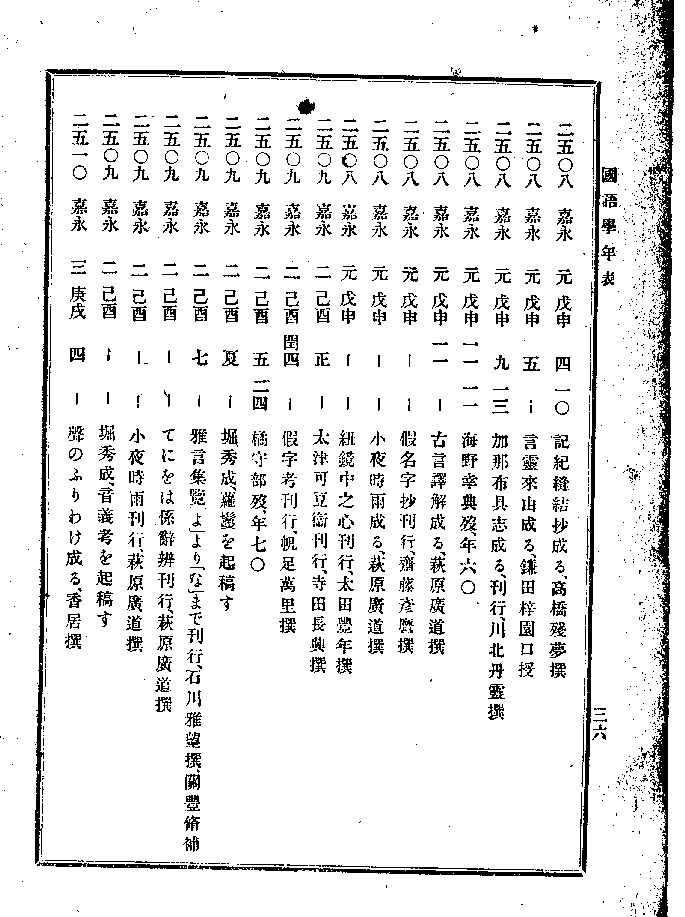 國語學年表
二五〇八 嘉永 元 戊申 四 一〇 記紀縫結抄成る、高橋殘夢撰
二五〇八 嘉永 元 戊申 五 ― 言靈來由成る、鎌田梓園口授
二五〇八 嘉永 元 戊申 九 一三 加那布具志成る、刊行、川北丹靈撰
二五〇八 嘉永 元 戊申 一一 一一 海野幸典歿、年六〇
二五〇八 嘉永 元 戊申 一一 ― 古言譯解成る、萩原廣道撰
二五〇八 嘉永 元 戊申 ― ― 假名字抄刊行、齋藤彦麿撰
二五〇八 嘉永 元 戊申 ― ― 小夜時雨成る、萩原廣道撰
二五〇八 嘉永 元 戊申 ― ― 紐鏡中之心刊行、太田豐年撰
二五〇九 嘉永 二 己酉 正 ― 太津可豆衞刊行、寺田長興撰
二五〇九 嘉永 二 己酉 閏四 ― 假字考刊行、帆足萬里撰
二五〇九 嘉永 二 己酉 五 二四 橘守部歿、年七〇
二五〇九 嘉永 二 己酉 夏 ― 堀秀成、蘿鬘を起稿す
二五〇九 嘉永 二 己酉 七 ― 雅言集覽「よ」より「な」まで刊行、石川雅望撰、關豐脩補
二五〇九 嘉永 二 己酉 ― ― てにをは係辭辨刊行、萩原廣道撰
二五〇九 嘉永 二 己酉 ― ― 小夜時雨刊行、萩原廣道撰
二五〇九 嘉永 二 己酉 ― ― 堀秀成、音義考を起稿す
二五一〇 嘉永 三 庚戌 四 ― 聲のふりわけ成る、香居撰
三六